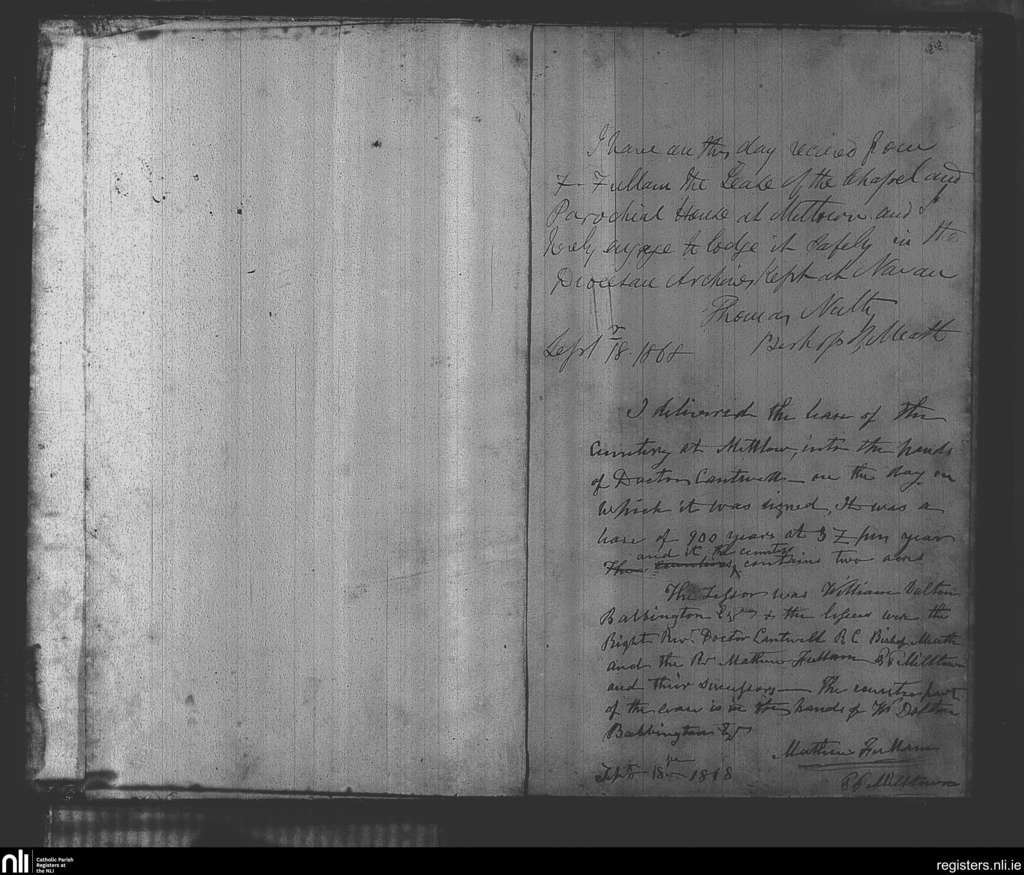 22
I have on this day recieved from
F. Fullam the Lease of the Chapel and
Parochial House at Miltown and I
herely engage to lodge it safely in the
Diocesan Archives kept at Navan
Thomas Nulty
Bishop of Meath
Sept 18 1868
I delivered the lease of the
Cemetery at Milltown, into the hands
of Doctor Cantwell on the day on
which it was signed, It was a
lease of 900 years at per year
and it the cemetery contains two acres
The Lessor was William Dalton
Babbington Esq & the lessees were the
Right Revd. Doctor Cantwell R C Bishop Meath
and the Rv Mathew Fullam P P Milltown
and their successors — The counter part
of the lease is in the hands of Wm Dalton
Babbington Esqr
Mathew Fullam
P P Milltown
Septr 18 1868
nli
Catholic Parish
Registers at
the NLI
registers.nli.ie